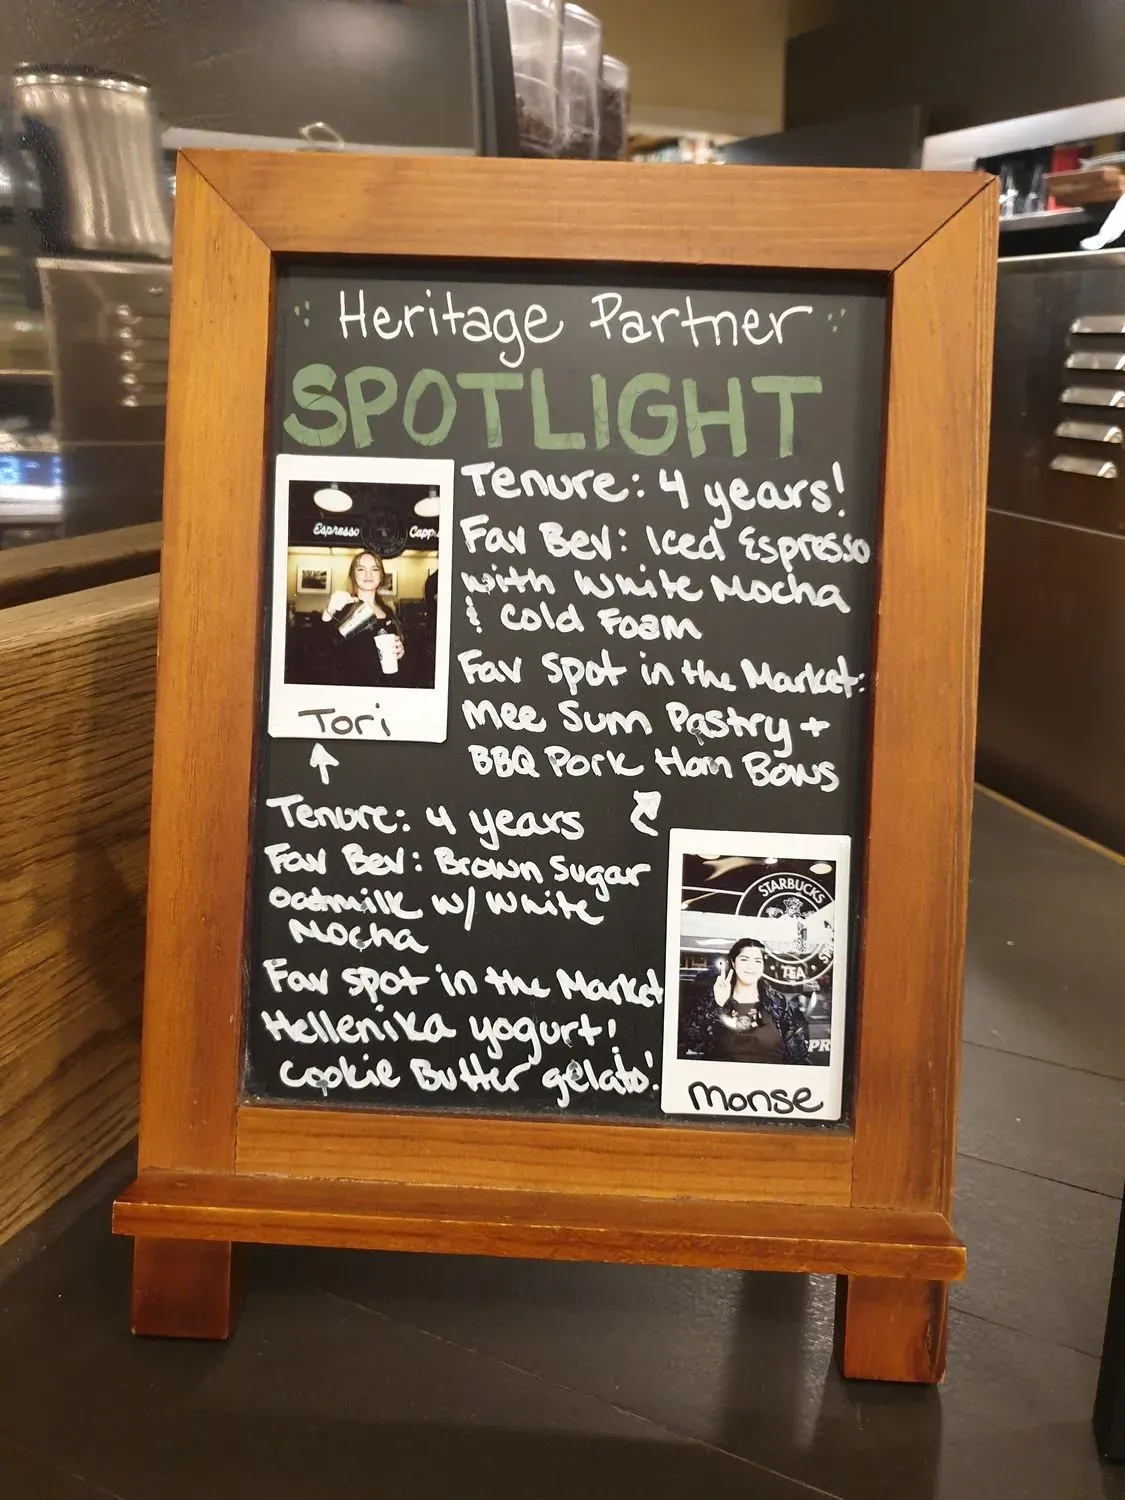 Heritage Partner
SPOTLIGHT
Espresso
Capp
Tori
Tenure: 4 years!
Fav Bev: Iced Espresso
with White Mocha
& Cold Foam
Fav Spot in the Market:
Mee Sum Pastry +
BBQ Pork Hom Bows
Tenure: 4 years
Fav Bev: Brown Sugar
Oatmilk w/ White
Mocha
Fav spot in the Market
Hellenika yogurt!
Cookie Butter gelato!
STARBUCKS
TEA
Monse